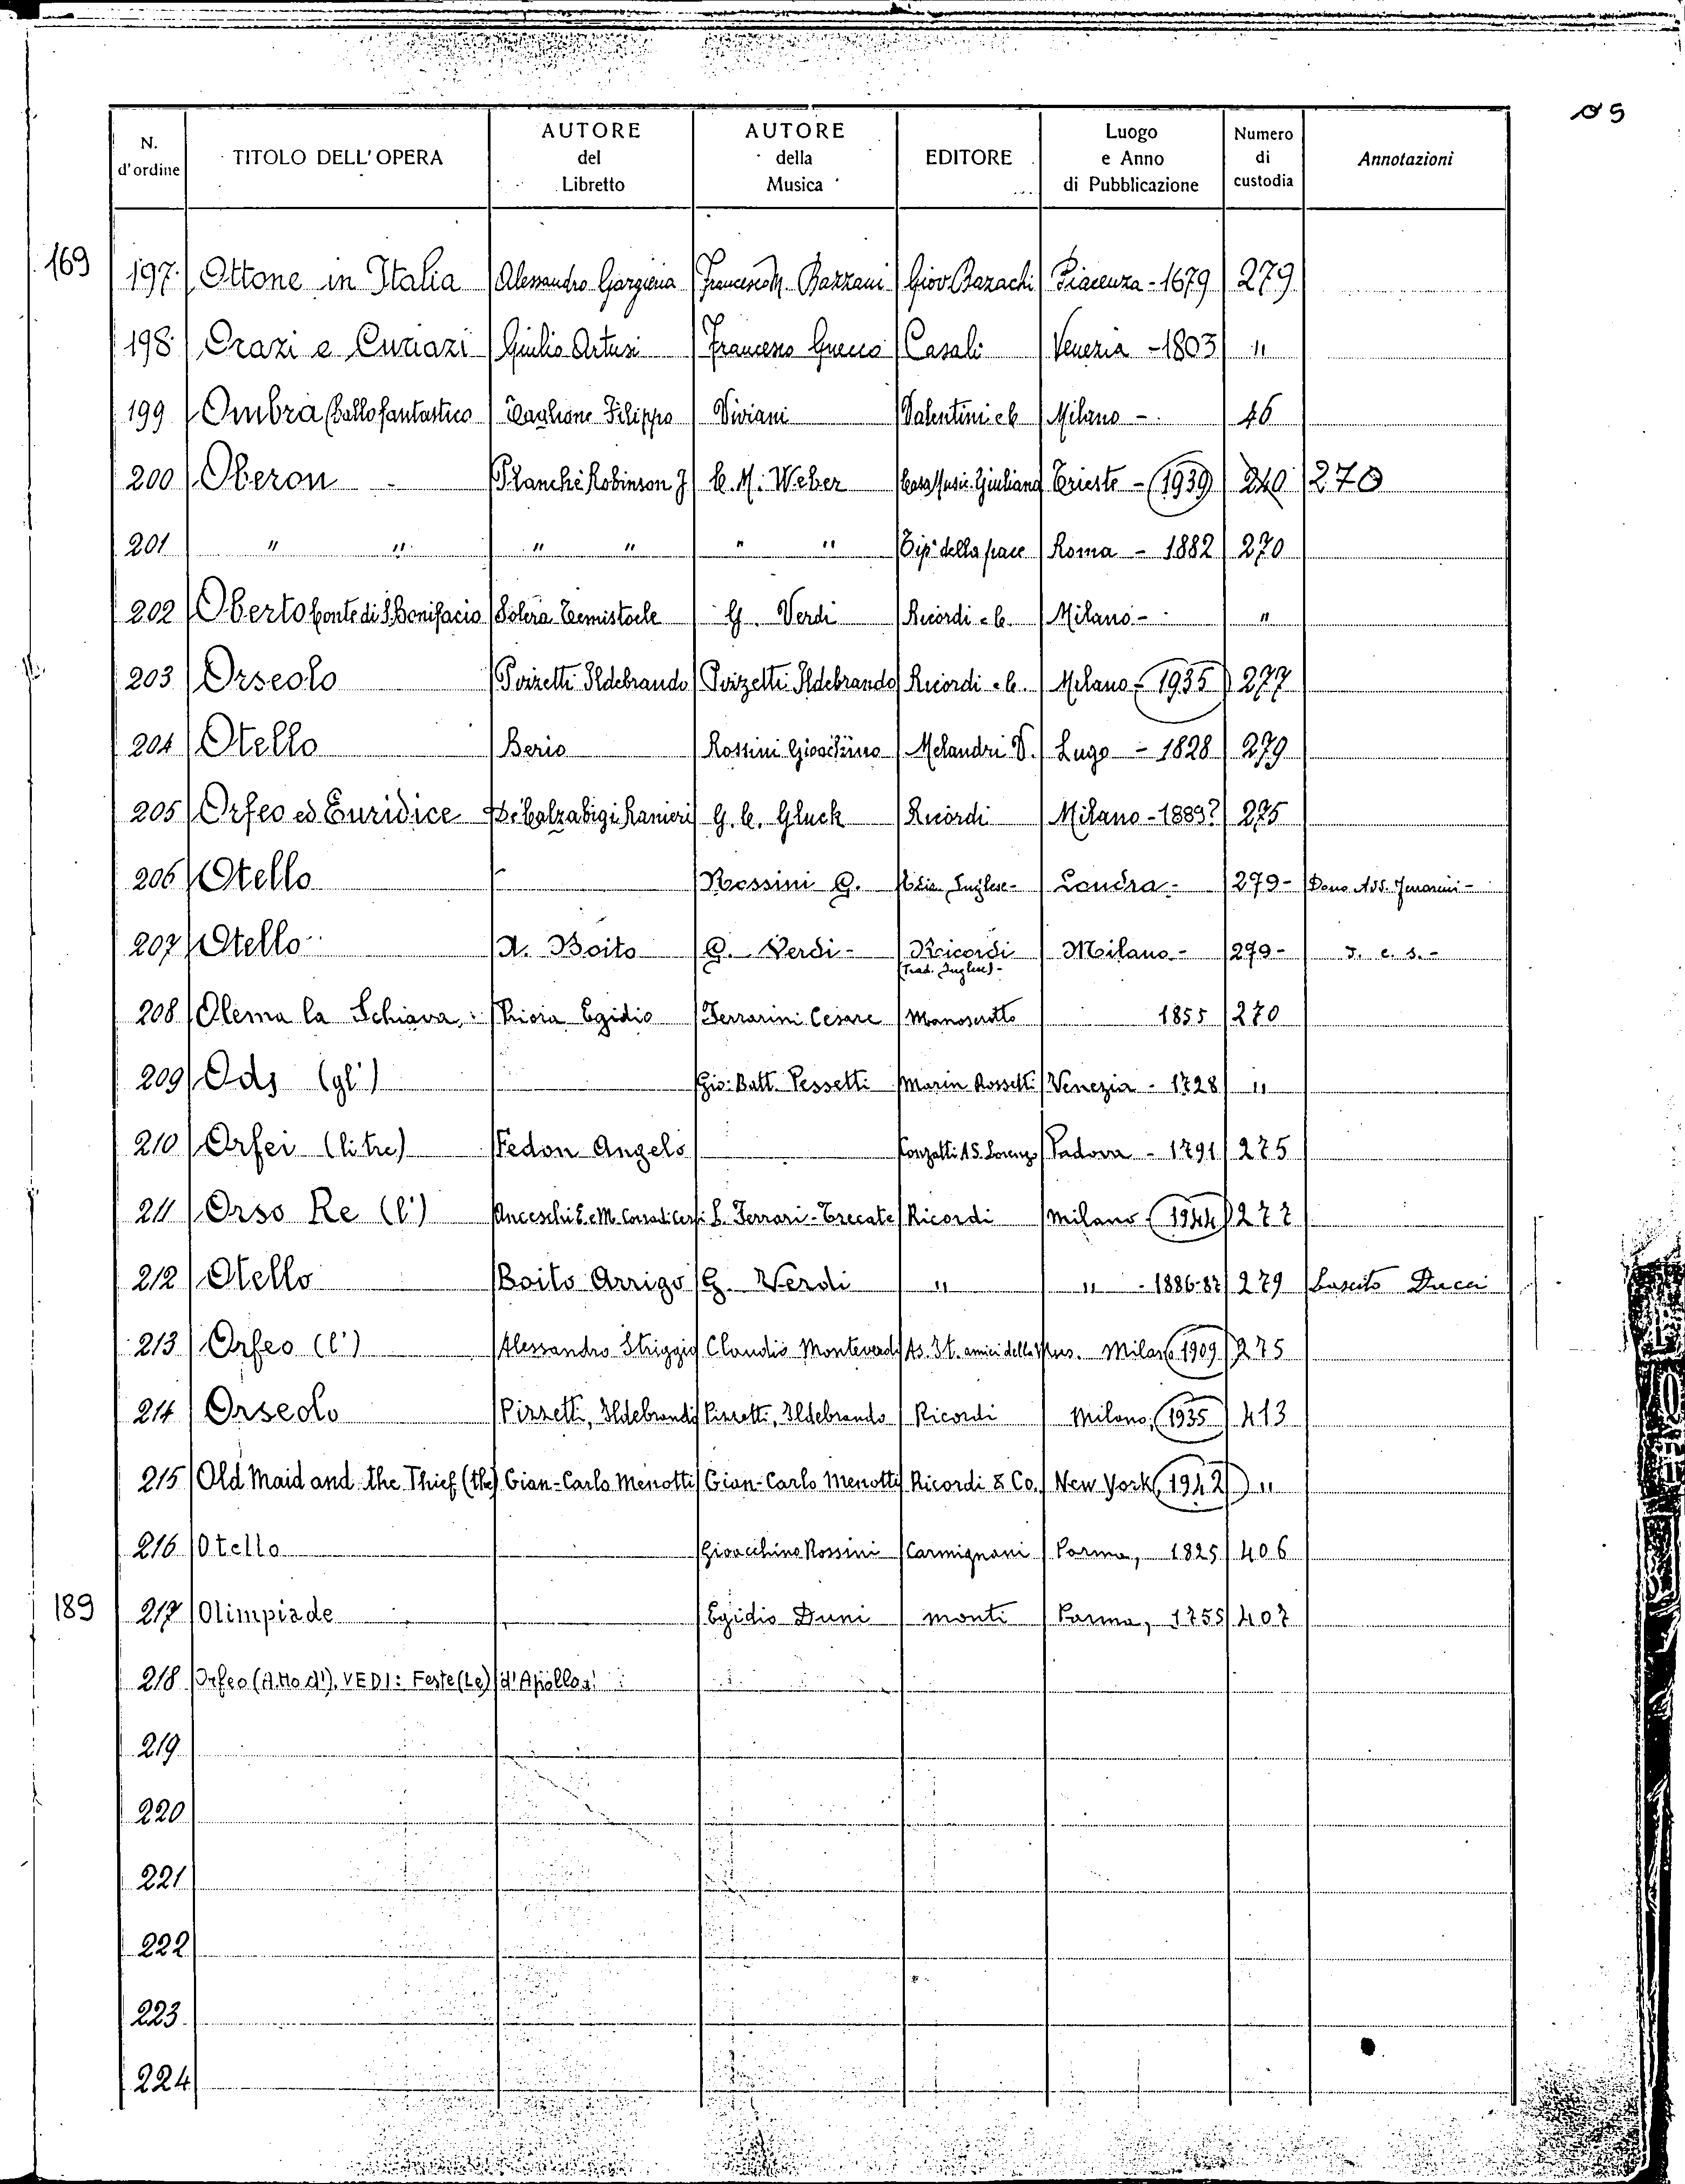 Ø 5
N. d'ordine | TITOLO DELL'OPERA | AUTORE del Libretto | AUTORE della Musica | EDITORE | Luogo e Anno di Pubblicazione | Numero di custodia | Annotazioni
169
197 | Ottone in Italia | Alessandro Gargieria | Francesco M. Bazzani | Giov Bazachi | Piacenza - 1679 | 279
198 | Orazi e Curiazi | Giulio Artusi | Francesco Gnecco | Casali | Venezia - 1803 | "
199 | Ombra (ballo fantastico | Taglione Filippo | Viviani | Valentini e C | Milano - | 46
200 | Oberon - | Planchè Robinson J | C. M. Weber | Casa Music. Giuliana | Trieste - 1939 | 240 | 270
201 | " " | " " | " " | Tip. della pace | Roma - 1882 | 270
202 | Oberto Conte di S. Bonifacio | Solera Temistocle | G. Verdi | Ricordi e C. | Milano - | "
203 | Orseolo | Pizzetti Ildebrando | Pizzetti Ildebrando | Ricordi e C. | Milano - 1935 | 277
204 | Otello | Berio | Rossini Gioachino | Melandri V. | Lugo - 1828 | 279
205 | Orfeo ed Euridice | De Calzabigi Ranieri | G. C. Gluck | Ricordi | Milano - 1889? | 275
206 | Otello | Rossini G. | Ediz. Inglese - | Londra - | 279 - | Dono Avv. -
207 | Otello | A. Boito | G. Verdi - | Ricordi | Milano - | 279 - | I. c. s. -
(Trad. Inglese) -
208 | Olema la Schiava | Priora Egidio | Ferrarini Cesare | Manoscritto | 1855 | 270
209 | Odj (gl') | Gio: Batt. Pessetti | Marin Rossetti | Venezia - 1728 | "
210 | Orfei (li tre) | Fedon Angelo | Conzatti A S. Lorenzo | Padova - 1791 | 275
211 | Orso Re (l') | Anceschi E. e M. Corradi Cervi | L. Ferrari - Trecate | Ricordi | Milano - 1944 | 277
212 | Otello | Boito Arrigo | G. Verdi | " | " - 1886-87 | 279 | Lascito Ducci
213 | Orfeo (l') | Alessandro Striggio | Claudio Monteverdi | As. It. amici della Mus. | Milano 1909 | 275
214 | Orseolo | Pizzetti, Ildebrando | Pizzetti, Ildebrando | Ricordi | Milano, 1935 | 413
215 | Old Maid and the Thief (the) | Gian-Carlo Menotti | Gian-Carlo Menotti | Ricordi & Co. | New York, 1942 | "
216 | Otello | Gioacchino Rossini | Carmignani | Parma, 1825 | 406
189
217 | Olimpiade | Egidio Duni | Monti | Parma, 1755 | 407
218 | Orfeo (Atto d'). VEDI: Feste (Le) d'Apollo
219
220
221
222
223
224